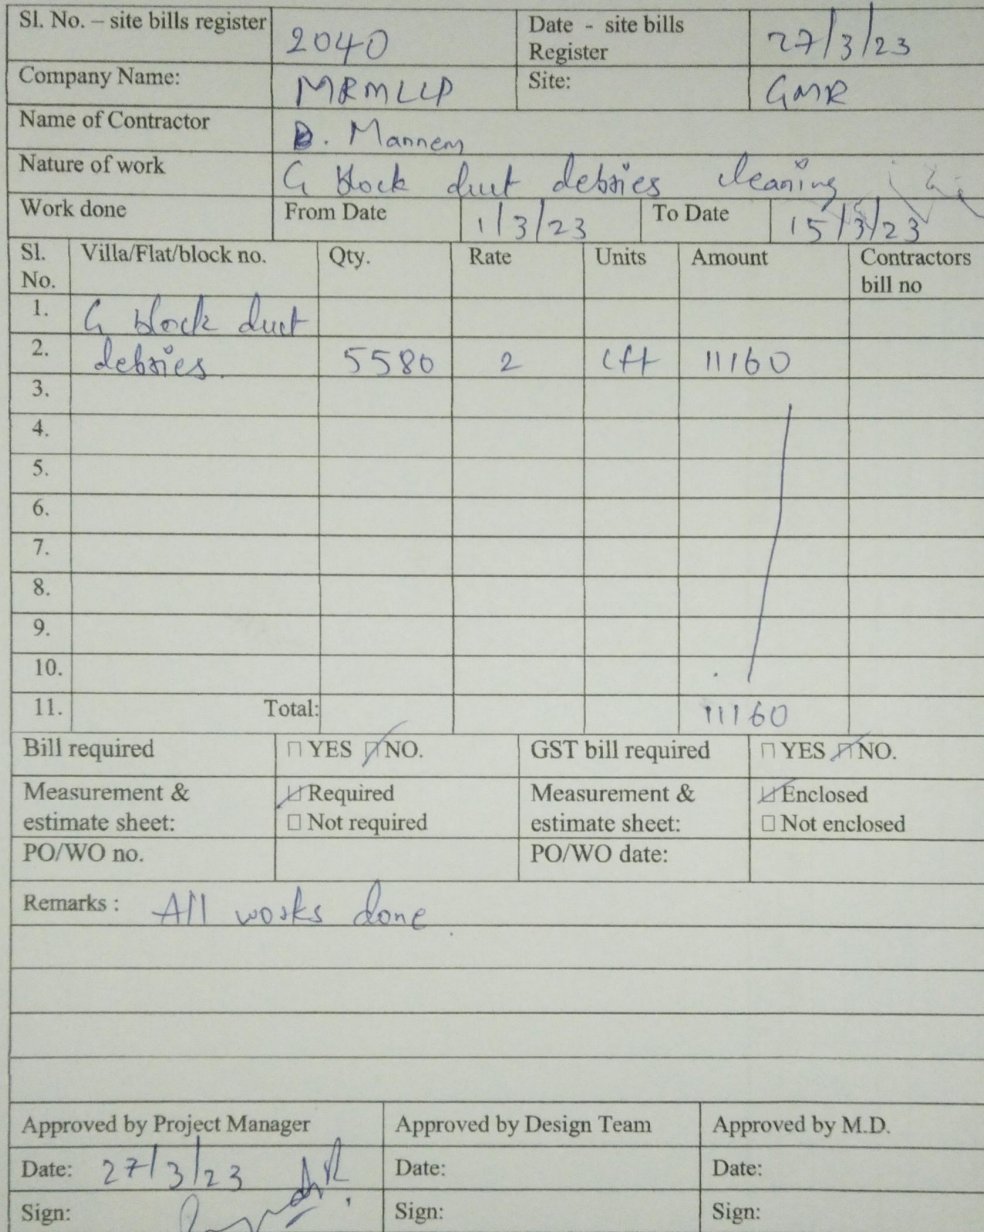 Sl. No. – site bills register 2040 Date - site bills Register 27/3/23
Company Name: MRMLLP Site: GMR
Name of Contractor B. Mannem
Nature of work G block duct debries cleaning
Work done From Date 1/3/23 To Date 15/3/23
Sl. No. Villa/Flat/block no. Qty. Rate Units Amount Contractors bill no
1. G block duct
2. debries. 5580 2 cft 11160
3.
4.
5.
6.
7.
8.
9.
10.
11. Total: 11160
Bill required □ YES ☑ NO. GST bill required □ YES ☑ NO.
Measurement & estimate sheet: ☑ Required □ Not required Measurement & estimate sheet: ☑ Enclosed □ Not enclosed
PO/WO no. PO/WO date:
Remarks : All works done
Approved by Project Manager Approved by Design Team Approved by M.D.
Date: 27/3/23 Date: Date:
Sign: Sign: Sign: